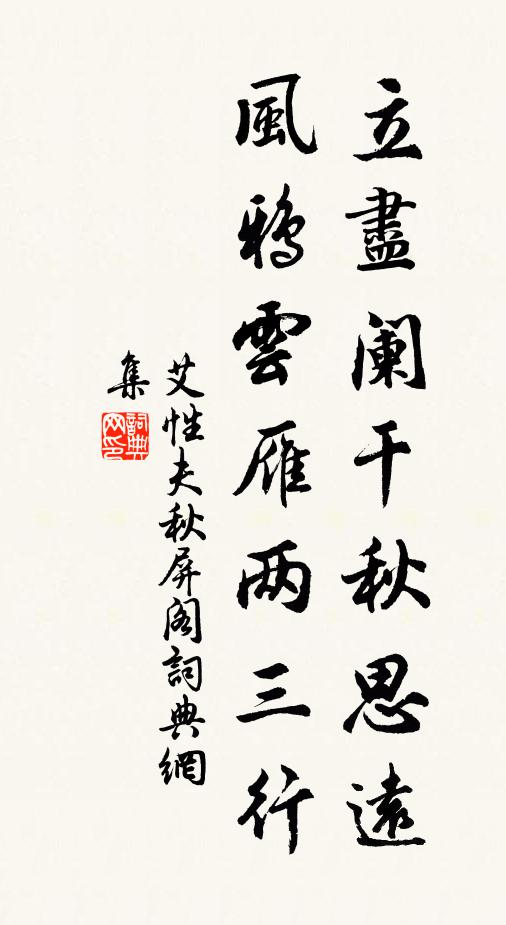 立盡阑干秋思遠
風鴉雲雁两三行
艾性夫秋屏阁詞典網
集
詞典
网印